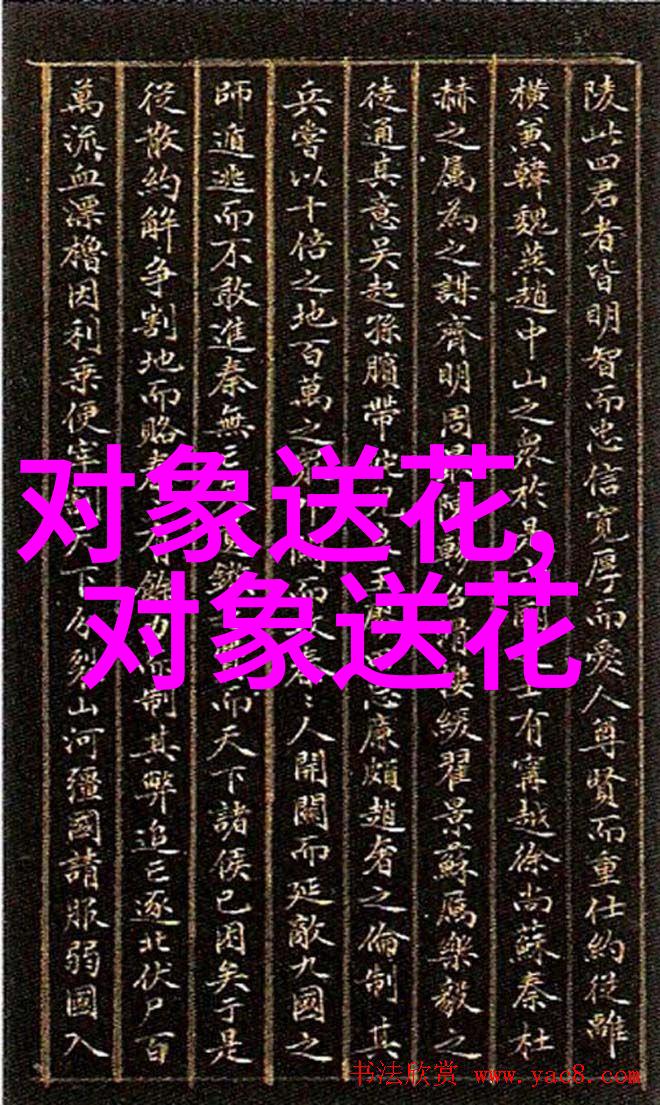 陵此四君者皆明智而忠信寬厚而愛人尊賢而重仕約從離
橫兼韓魏燕趙中山之衆於士有甯越徐尚蘇秦杜
赫之屬為之謀齊明周樓緩翟景蘇厲樂毅之
徒通其意吳起孫臏帶王廖忌廉頗趙奢之倫制其
兵嘗以十倍之地百萬之關而秦:人開關而延敵九國之
師遁逃而不敢進秦無而天下諸侯已困矣于是
從散約解爭割地而賂有餘力而制其弊追亡逐北伏尸百
萬流血漂櫓因利乘便宰天下分裂山河彊國請服弱國入
对象送花,
对象送花
书法欣赏 www.yac8.com